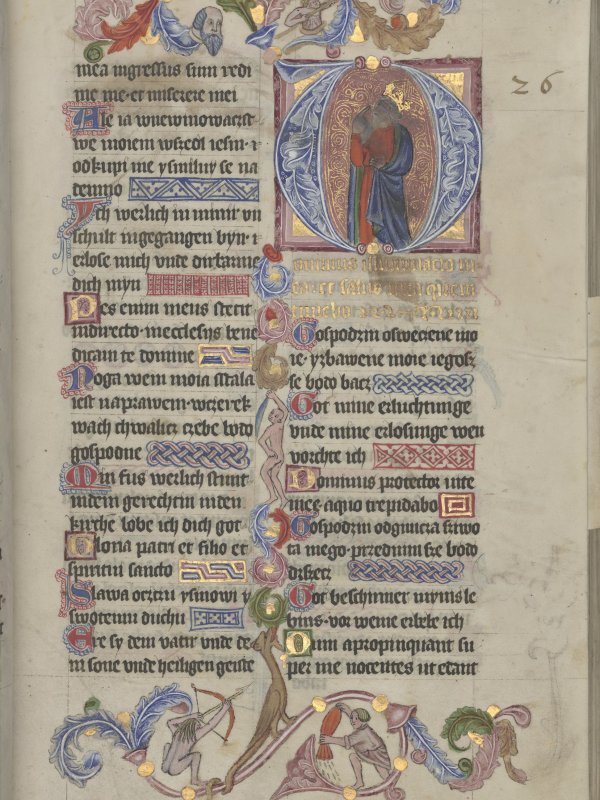 mea ingressus sum redi
me me et miserere mei
Ale ia wnewinowaczst
we moiem wszedl iesm· i
odkupi me ysmiluy se na
Ich werlich in minir vn
schult ingegangen byn· i
erlose mich vnde dirbarme
dich myn
Pes enim meus stetit
indirecto· inecclesijs bene
dicam te domine
Noga wem moia sstala
iest naprawem· wczerek
wach chwalicz czebe bodo
gospodne
Min fus werlich stunt
indem gerechtin inden
kirche lobe ich dich got
Gloria patri et filio et
spiritui sancto
Slawa oczczu ysinowi y
swotemu duchu
Ere sy dem vatir vnde de
m sone vnde heiligen geiste
26
Gospodzin oswecene mo
ie· yzbawene moie iegosz
se bodo bacz
Got mine erluchtunge
vnde mine erlosunge wen
vorchte ich
Dominus protector uite
mee· aquo trepidabo
Gospodzin odgimcza sziwo
ta mego· przednim sze bodo
drszecz
Got beschirmer mynis le
bins· vor weme erbebe ich
Dum apropinquant su
per me nocentes ut edant